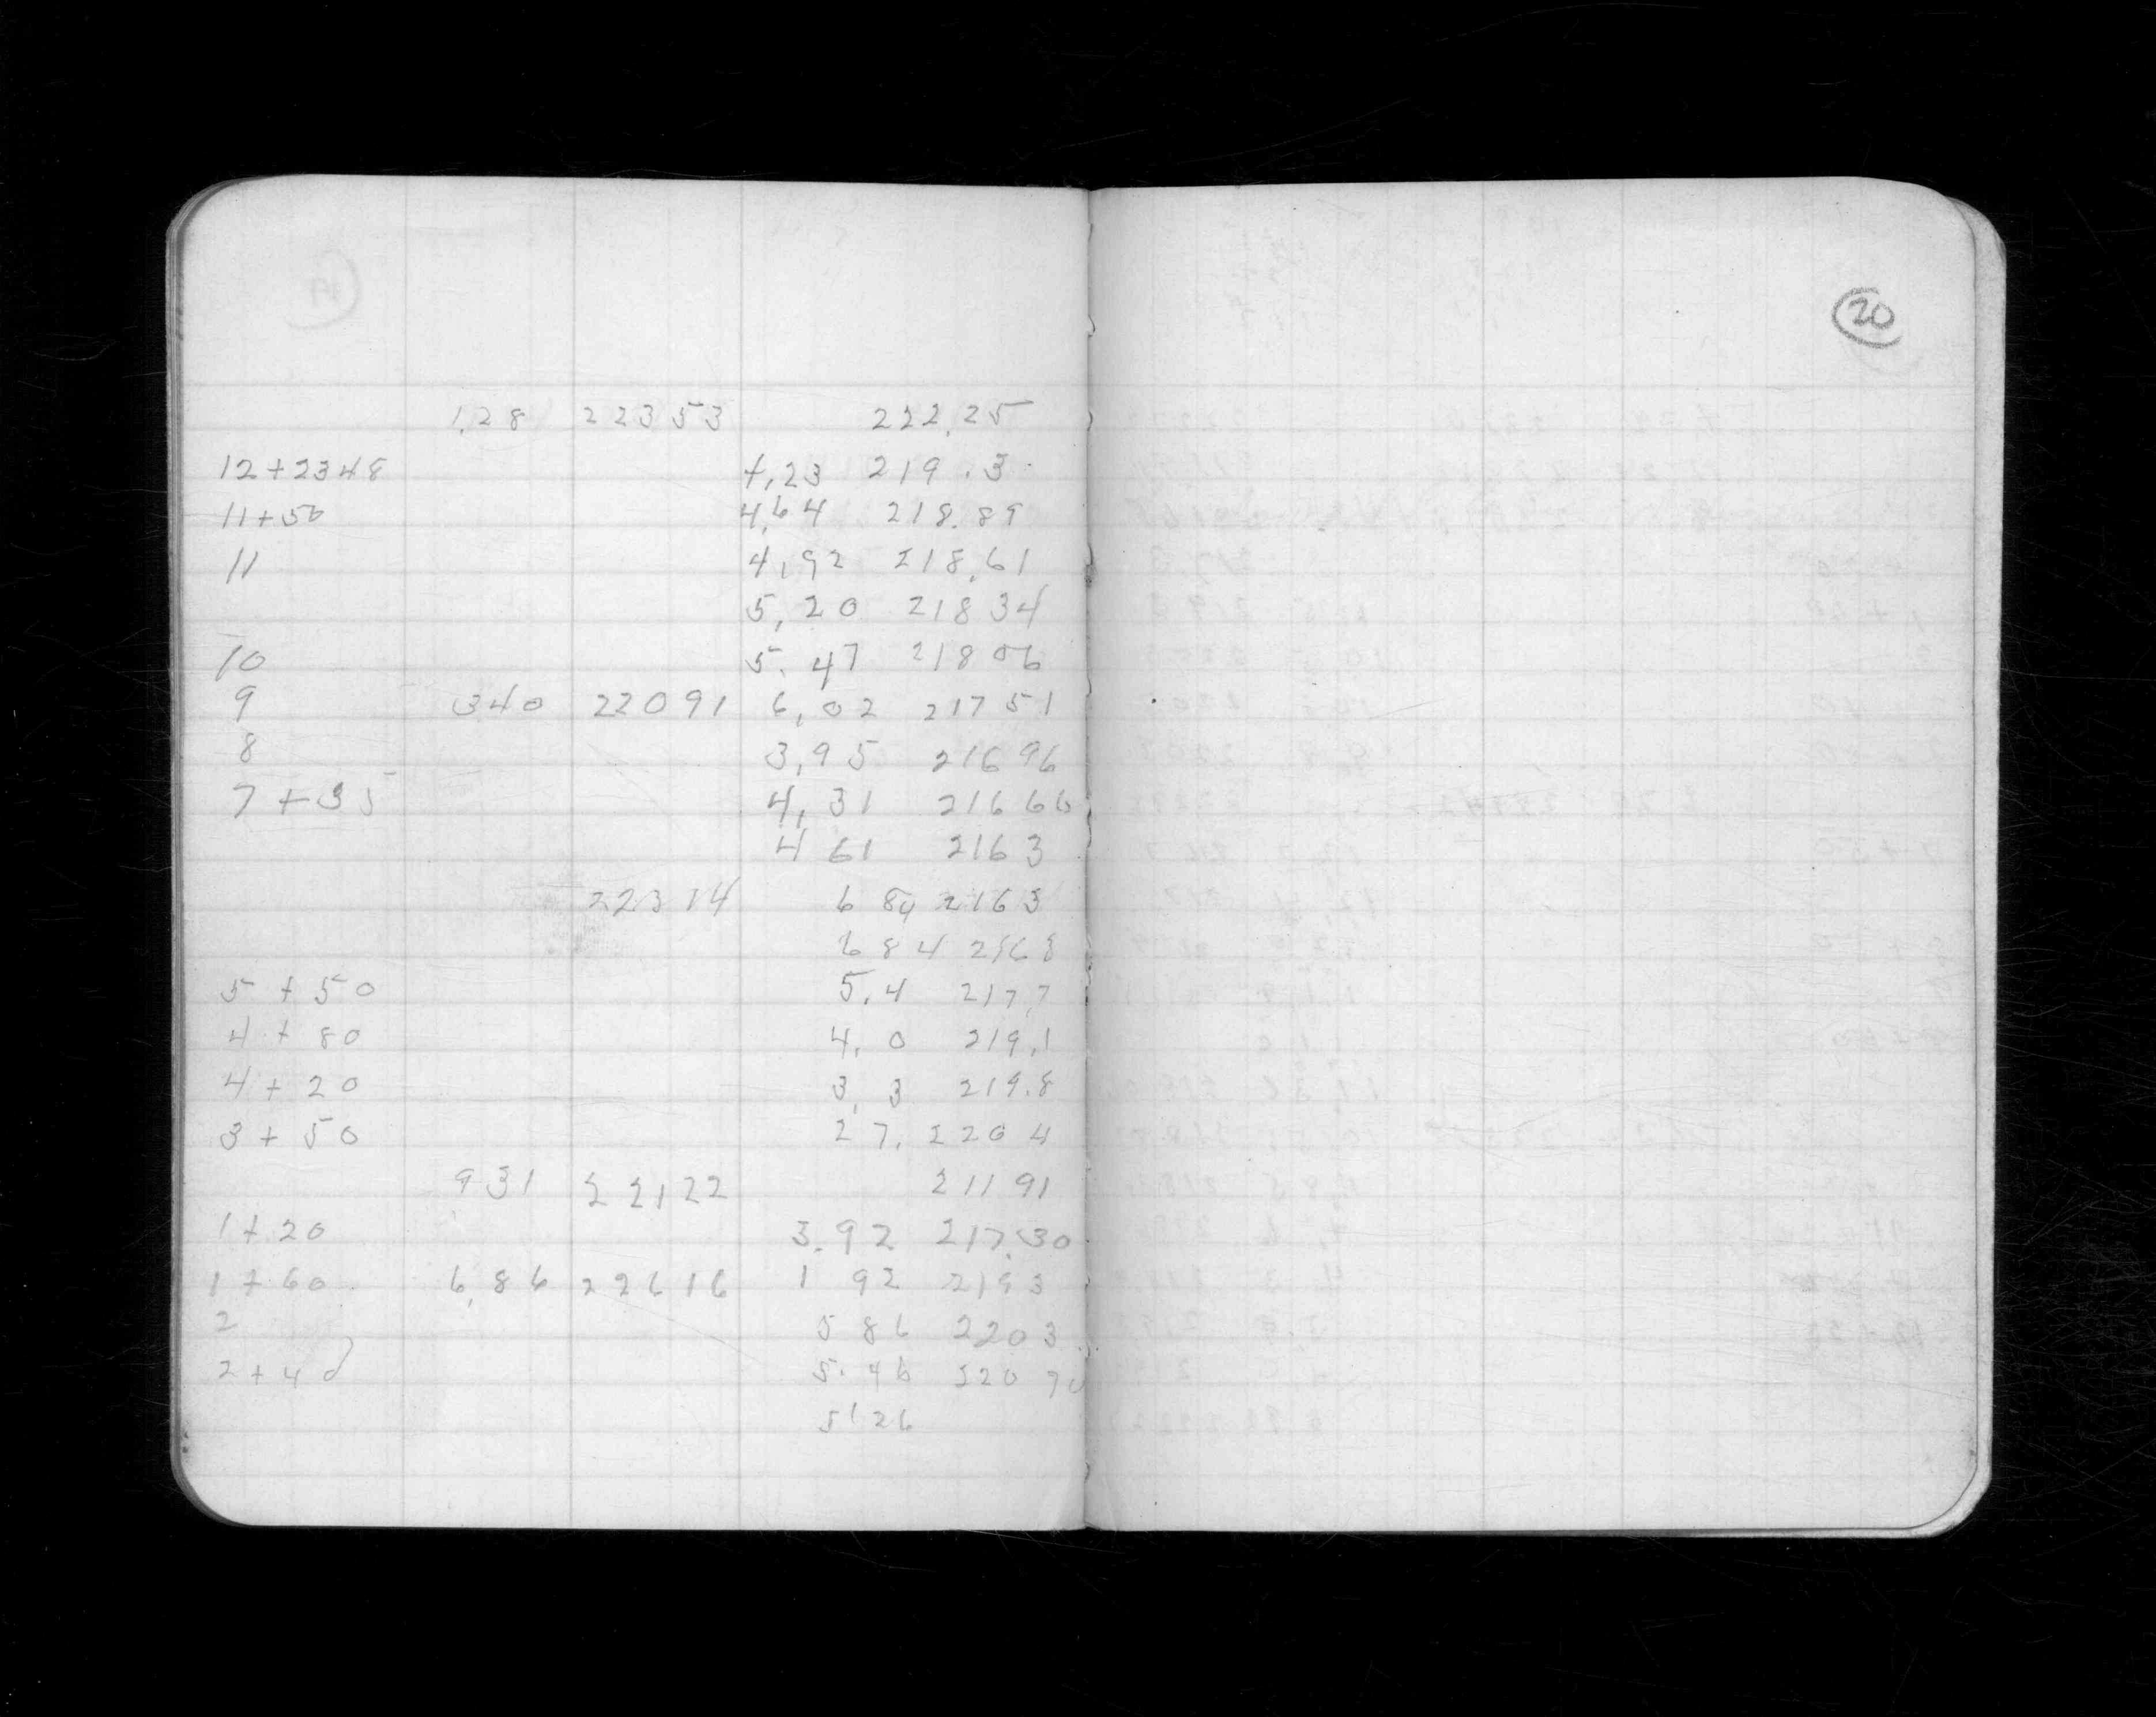 1.28 22353 222.25
12+2348 4.23 219.3
11+50 4.64 218.89
11 4.92 218.61
5.20 218 34
10 5.47 218 06
9 340 22091 6.02 217 51
8 3.95 216 96
7+35 4.31 216 66
4 61 216 3
22314 6 84 216 3
6 84 216 8
5+50 5.4 217.7
4+80 4.0 219.1
4+20 3.3 219.8
3+50 2 7. 220 4
931 22122 211 91
1+20 3.92 217.30
1+60 6.86 22616 1 92 219 3
2 5 86 220 3
2+40 5.46 220 70
5 26
20